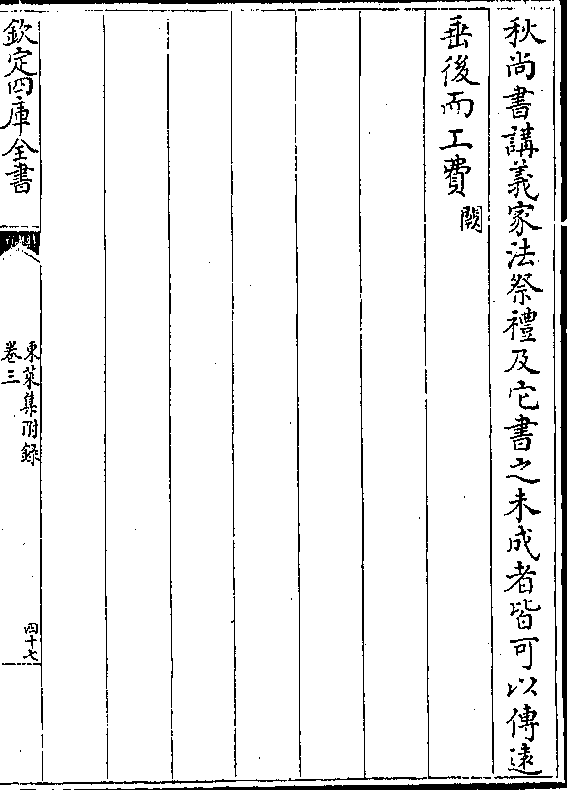 秋尚書講義家法祭禮及它書之未成者皆可以傳遠
垂後而工費闕
欽定四庫全書
東萊集附錄
卷三
四十七